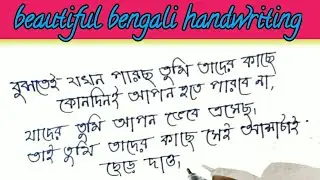 beautiful bengali handwriting
বুঝতেই যখন পারছ তুমি তাদের কাছে
কোনদিনই আপন হতে পারবে না,
যাদের তুমি আপন ভেবে এসেছ,
তাই তুমি তাদের কাছে সেই আশাটাই
ছেড়ে দাও,